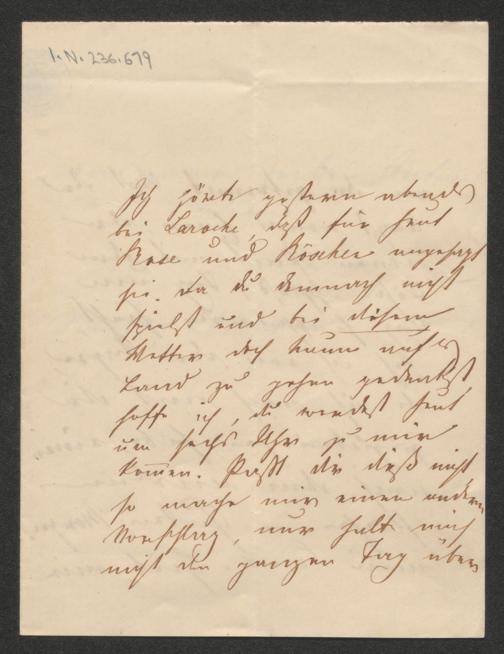 I.N. 236.679
Ich hörte gestern abends
bei Laroche, daß für heut
Rose und Röschen angesagt
sei. Da du demnach nicht
spielst und bei diesem
Wetter doch kaum aufs
Land zu gehen gedenkst
hoffe ich, du werdest heut
um sechs Uhr zu mir
kommen. Paßt dir dieß nicht
so mache mir einen andern
Vorschlag, nur halt mich
nicht den ganzen Tag über